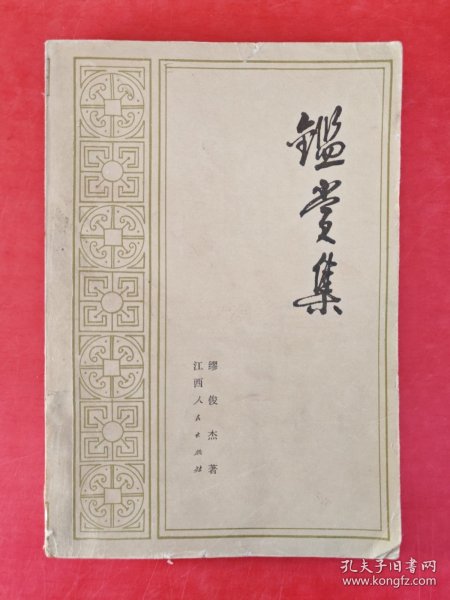 鑑賞集
缪俊杰著
江西人民出版社
孔夫子旧书网
www.kongfz.com